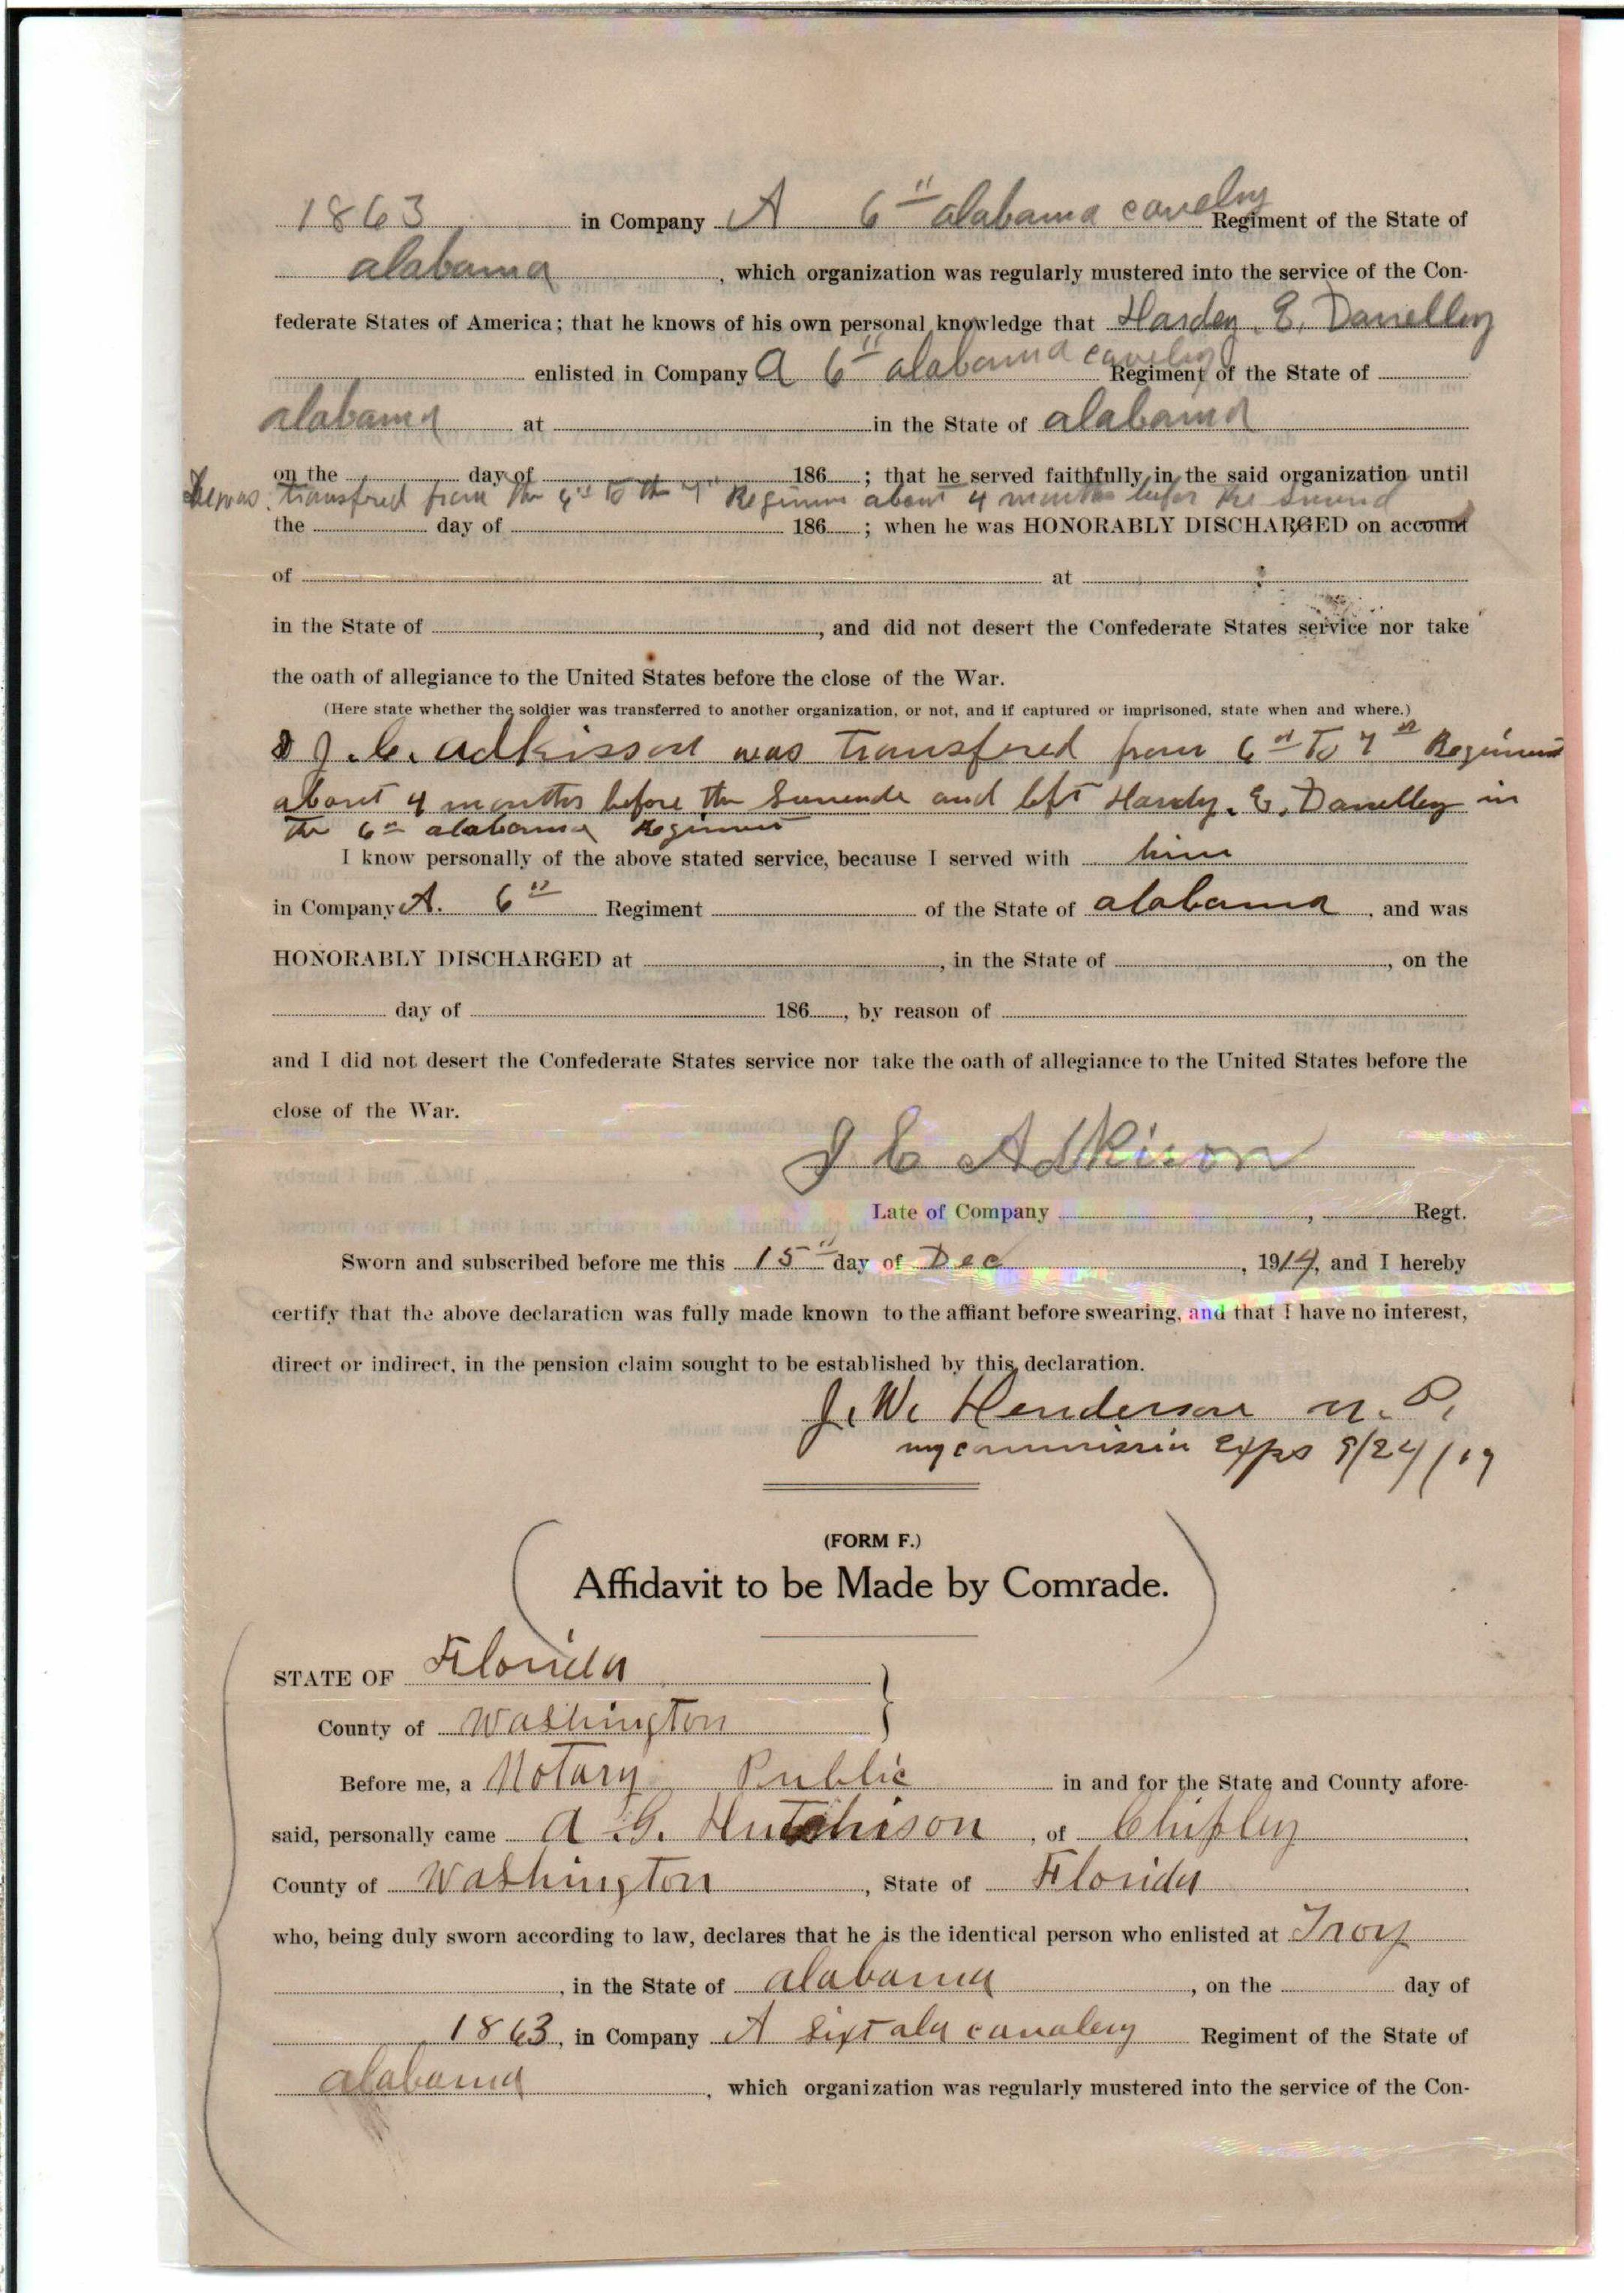 1863 in Company A 6" alabama cavelry Regiment of the State of
alabama, which organization was regularly mustered into the service of the Con-
federate States of America; that he knows of his own personal knowledge that Harden E. Danelley
enlisted in Company A 6" alabama cavelry Regiment of the State of
alabama at in the State of alabama
on the day of 186 ; that he served faithfully in the said organization until
transfered from the to the Regimen about 4 months befor the
the day of 186 ; when he was HONORABLY DISCHARGED on account
of at
in the State of , and did not desert the Confederate States service nor take
the oath of allegiance to the United States before the close of the War.
(Here state whether the soldier was transferred to another organization, or not, and if captured or imprisoned, state when and where.)
J. C. Adkisson was transfered from 6 to 7 Regiment
about 4 months before the Surrende and left Hardy. E. Danelley in
the 6th alabama Regiment
I know personally of the above stated service, because I served with him
in Company A. 6" Regiment of the State of alabama, and was
HONORABLY DISCHARGED at , in the State of , on the
day of 186 , by reason of
and I did not desert the Confederate States service nor take the oath of allegiance to the United States before the
close of the War.
J C Adkison
Late of Company , Regt.
Sworn and subscribed before me this 15" day of Dec , 1914, and I hereby
certify that the above declaration was fully made known to the affiant before swearing, and that I have no interest,
direct or indirect, in the pension claim sought to be established by this declaration.
J. W. Henderson N. P.
my commission exps 9/24/17
(FORM F.)
Affidavit to be Made by Comrade.
STATE OF Florida
County of Washington
Before me, a Notary Public in and for the State and County afore-
said, personally came A. G. Hutchison, of Chipley
County of Washington, State of Florida
who, being duly sworn according to law, declares that he is the identical person who enlisted at Troy
, in the State of alabama, on the day of
1863, in Company A Sixt ala cavalery Regiment of the State of
alabama, which organization was regularly mustered into the service of the Con-